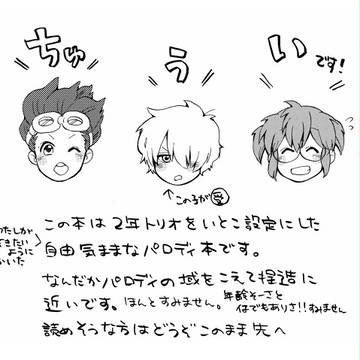 ちゅういです!
↑この子が受
この本は2年トリオをいとこ設定にした
自由気ままなパロディ本です。
なんだかパロディの域をこえて捏造に
近いです。ほんとすみません。年齢そーさと
何でもありさ!!すみません
読めそうな方はどうぞこのまま先へ
わたしが
できたい
ように
かいた